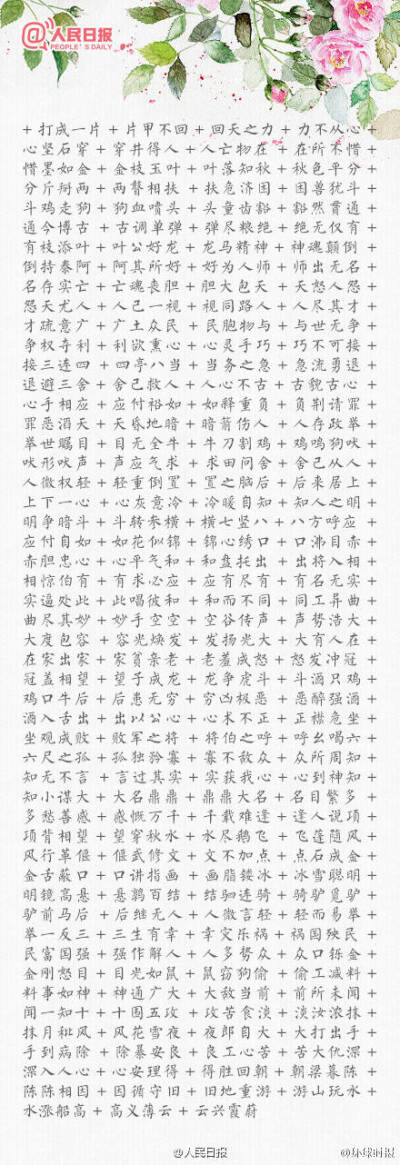 人民日报
PEOPLE'S DAILY
+ 打成一片 + 片甲不回 + 回天之力 + 力不从心 +
心坚石穿 + 穿井得人 + 人亡物在 + 在所不惜 +
惜墨如金 + 金枝玉叶 + 叶落知秋 + 秋色平分 +
分斤掰两 + 两瞽相扶 + 扶危济困 + 困兽犹斗 +
斗鸡走狗 + 狗血喷头 + 头童齿豁 + 豁然贯通 +
通今博古 + 古调单弹 + 弹尽粮绝 + 绝无仅有 +
有枝添叶 + 叶公好龙 + 龙马精神 + 神魂颠倒 +
倒持泰阿 + 阿其所好 + 好为人师 + 师出无名 +
名存实亡 + 亡魂丧胆 + 胆大包天 + 天怒人怨 +
怨天尤人 + 人己一视 + 视同路人 + 人尽其才 +
才疏意广 + 广土众民 + 民胞物与 + 与世无争 +
争权夺利 + 利欲熏心 + 心灵手巧 + 巧不可接 +
接三连四 + 四亭八当 + 当务之急 + 急流勇退 +
退避三舍 + 舍己救人 + 人心不古 + 古貌古心 +
心手相应 + 应付裕如 + 如释重负 + 负荆请罪 +
罪恶滔天 + 天昏地暗 + 暗箭伤人 + 人存政举 +
举世瞩目 + 目无全牛 + 牛刀割鸡 + 鸡鸣狗吠 +
吠形吠声 + 声应气求 + 求田问舍 + 舍己从人 +
人微权轻 + 轻重倒置 + 置之脑后 + 后来居上 +
上下一心 + 心灰意冷 + 冷暖自知 + 知人之明 +
明争暗斗 + 斗转参横 + 横七竖八 + 八方呼应 +
应付自如 + 如花似锦 + 锦心绣口 + 口沸目赤 +
赤胆忠心 + 心平气和 + 和盘托出 + 出将入相 +
相惊伯有 + 有求必应 + 应有尽有 + 有名无实 +
实逼处此 + 此唱彼和 + 和而不同 + 同工异曲 +
曲尽其妙 + 妙手空空 + 空谷传声 + 声势浩大 +
大度包容 + 容光焕发 + 发扬光大 + 大有人在 +
在家出家 + 家贫亲老 + 老羞成怒 + 怒发冲冠 +
冠盖相望 + 望子成龙 + 龙争虎斗 + 斗酒只鸡 +
鸡口牛后 + 后患无穷 + 穷凶极恶 + 恶醉强酒 +
酒入舌出 + 出以公心 + 心术不正 + 正襟危坐 +
坐观成败 + 败军之将 + 将伯之呼 + 呼幺喝六 +
六尺之孤 + 孤独矜寡 + 寡不敌众 + 众所周知 +
知无不言 + 言过其实 + 实获我心 + 心到神知 +
知小谋大 + 大名鼎鼎 + 鼎鼎大名 + 名目繁多 +
多愁善感 + 感慨万千 + 千载难逢 + 逢人说项 +
项背相望 + 望穿秋水 + 水尽鹅飞 + 飞蓬随风 +
风行草偃 + 偃武修文 + 文不加点 + 点石成金 +
金舌蔽口 + 口讲指画 + 画脂镂冰 + 冰雪聪明 +
明镜高悬 + 悬鹑百结 + 结驷连骑 + 骑驴觅驴 +
驴前马后 + 后继无人 + 人微言轻 + 轻而易举 +
举一反三 + 三生有幸 + 幸灾乐祸 + 祸国殃民 +
民富国强 + 强作解人 + 人多势众 + 众口铄金 +
金刚怒目 + 目光如鼠 + 鼠窃狗偷 + 偷工减料 +
料事如神 + 神通广大 + 大敌当前 + 前所未闻 +
闻一知十 + 十围五攻 + 攻苦食淡 + 淡妆浓抹 +
抹月批风 + 风花雪夜 + 夜郎自大 + 大打出手 +
手到病除 + 除暴安良 + 良工心苦 + 苦大仇深 +
深入人心 + 心安理得 + 得胜回朝 + 朝梁暮陈 +
陈陈相因 + 因循守旧 + 旧地重游 + 游山玩水 +
水涨船高 + 高义薄云 + 云兴霞蔚
@人民日报
@环球时报